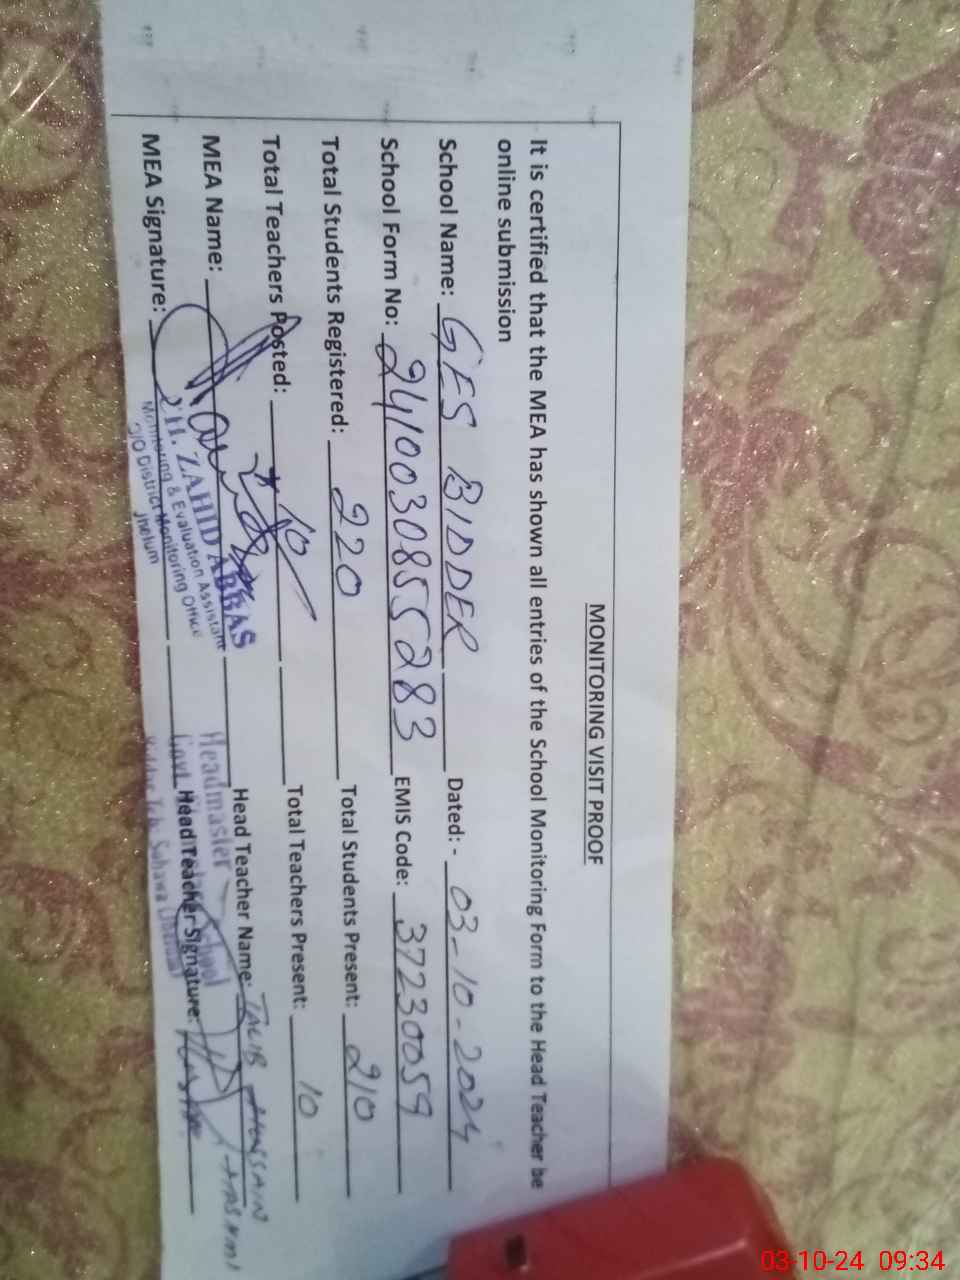 MONITORING VISIT PROOF
It is certified that the MEA has shown all entries of the School Monitoring Form to the Head Teacher be
online submission
School Name: GES BIDDER Dated: - 03-10-2024
School Form No: 2410030855283 EMIS Code: 37230059
Total Students Registered: 220 Total Students Present: 210
Total Teachers Posted: 10 Total Teachers Present: 10
MEA Name: Head Teacher Name: TALIB HUSSAIN HASHMI
MEA Signature: Head Teacher Signature:
CH. ZAHID ABBAS
Monitoring & Evaluation Assistant
O/O District Monitoring Office
Jhelum
Headmaster
Govt. School
Sohawa
03-10-24 09:34